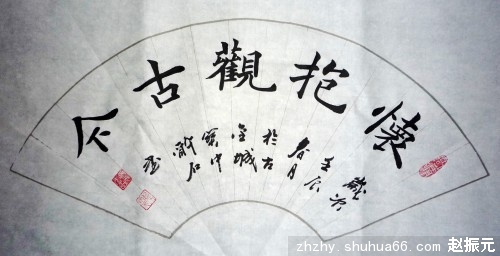 懷抱觀古今
歲次
壬辰
春月
於古
金城
zhzhy.shuhua66.com 赵振元